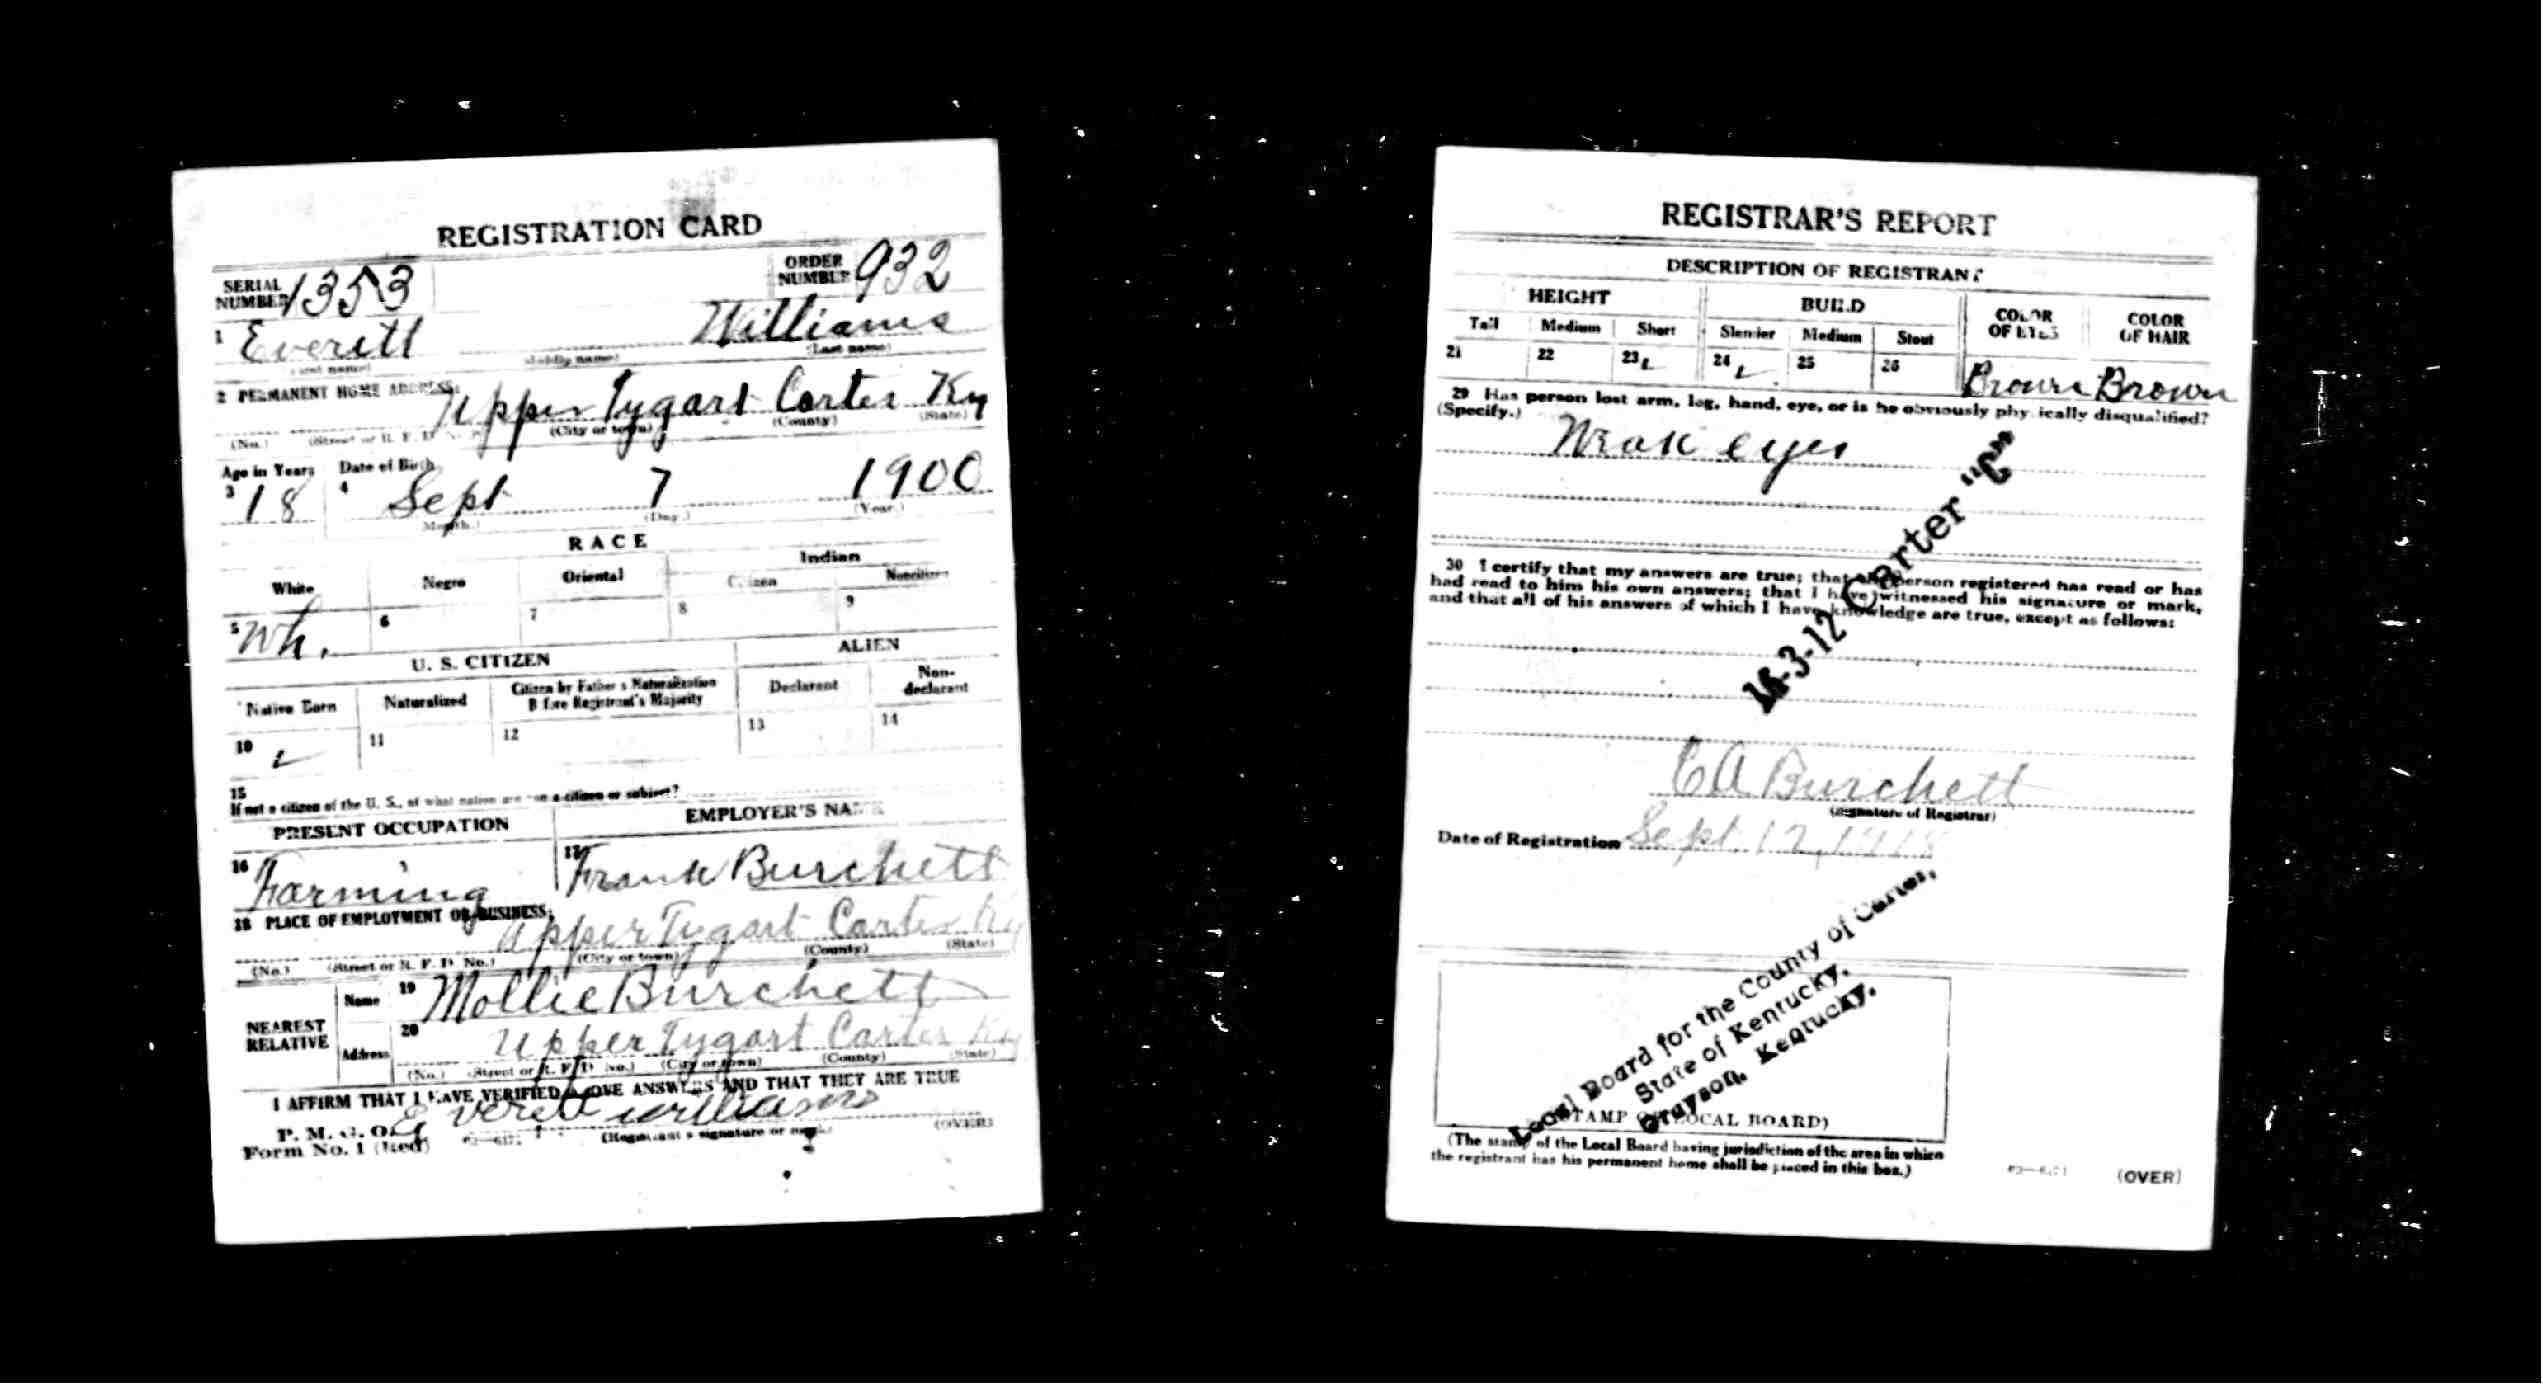 REGISTRATION CARD
SERIAL NUMBER 1353
ORDER NUMBER 932
1 Everett Williams
(First name) (Middle name) (Last name)
2 PERMANENT HOME ADDRESS:
Upper Tygart Carter Ky
(No.) (Street or R. F. D. No.) (City or town) (County) (State)
Age in Years Date of Birth
3 18 4 Sept 7 1900
(Month.) (Day.) (Year.)
RACE
White Negro Oriental Indian
Citizen Noncitizen
5 Wh. 6 7 8 9
U. S. CITIZEN ALIEN
Native Born Naturalized Citizen by Father's Naturalization Before Registrant's Majority Declarant Non-declarant
10 ✓ 11 12 13 14
15
If not a citizen of the U. S., of what nation are you a citizen or subject?
PRESENT OCCUPATION EMPLOYER'S NAME
16 Farming 17 Frank Burchett
18 PLACE OF EMPLOYMENT OR BUSINESS:
Upper Tygart Carter Ky
(No.) (Street or R. F. D. No.) (City or town) (County) (State)
NEAREST RELATIVE
Name 19 Mollie Burchett
Address 20 Upper Tygart Carter Ky
(No.) (Street or R. F. D. No.) (City or town) (County) (State)
I AFFIRM THAT I HAVE VERIFIED ABOVE ANSWERS AND THAT THEY ARE TRUE
P. M. G. O.
Form No. 1 (Red)
Everett Williams
(Registrant's signature or mark) (OVER)
REGISTRAR'S REPORT
DESCRIPTION OF REGISTRANT
HEIGHT BUILD COLOR OF EYES COLOR OF HAIR
Tall Medium Short Slender Medium Stout
21 22 23 ✓ 24 ✓ 25 26 Brown Brown
29 Has person lost arm, leg, hand, eye, or is he obviously physically disqualified?
(Specify.)
Weak eyes
30 I certify that my answers are true; that the person registered has read or has
had read to him his own answers; that I have witnessed his signature or mark,
and that all of his answers of which I have knowledge are true, except as follows:
16-3-12 Carter "C"
C A Burchett
(Signature of Registrar)
Date of Registration Sept. 12, 1918
Local Board for the County of Carter,
State of Kentucky,
Grayson, Kentucky.
(STAMP OF LOCAL BOARD)
(The stamp of the Local Board having jurisdiction of the area in which
the registrant has his permanent home shall be placed in this box.)
(OVER)